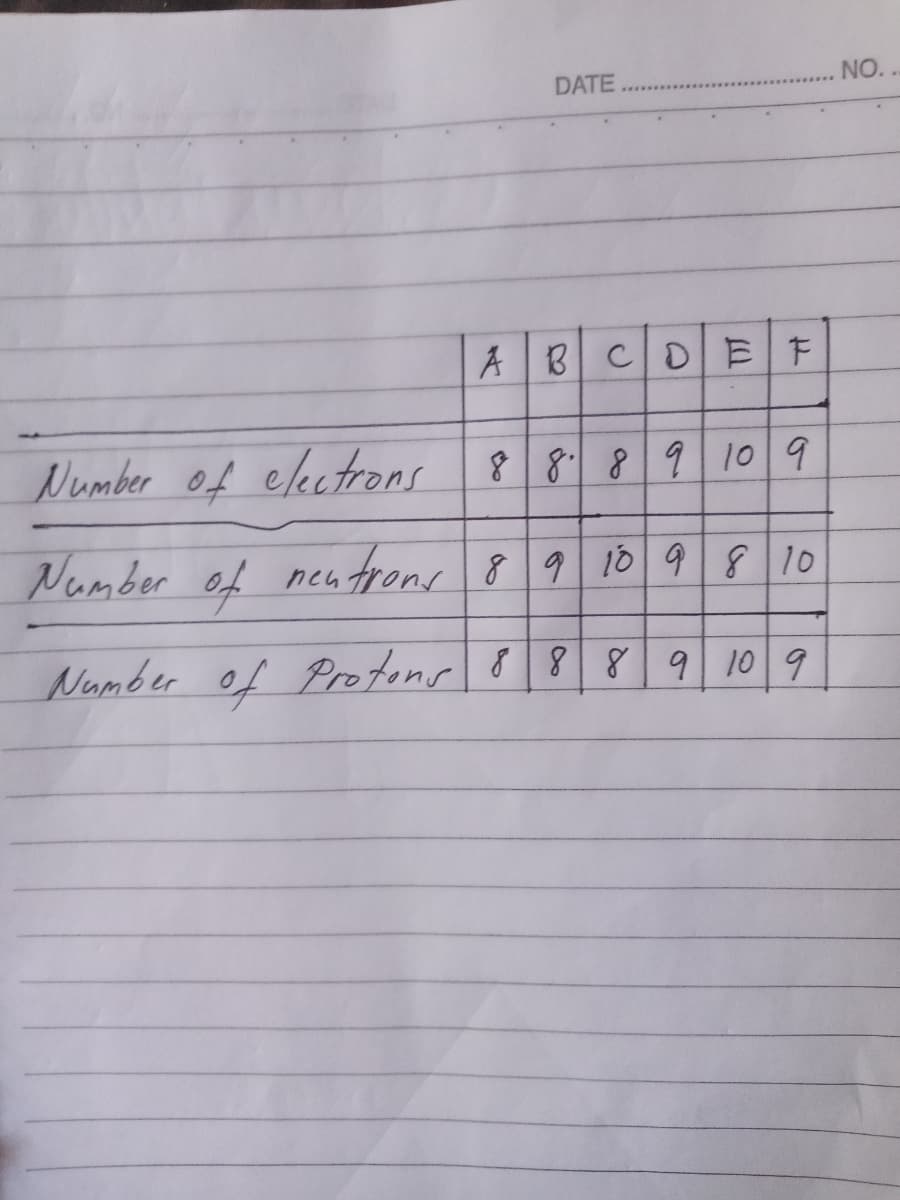 DATE ................................ NO. ..
A B C D E F
Number of electrons 8 8. 8 9 10 9
Number of neutrons 8 9 10 9 8 10
Number of Protons 8 8 8 9 10 9